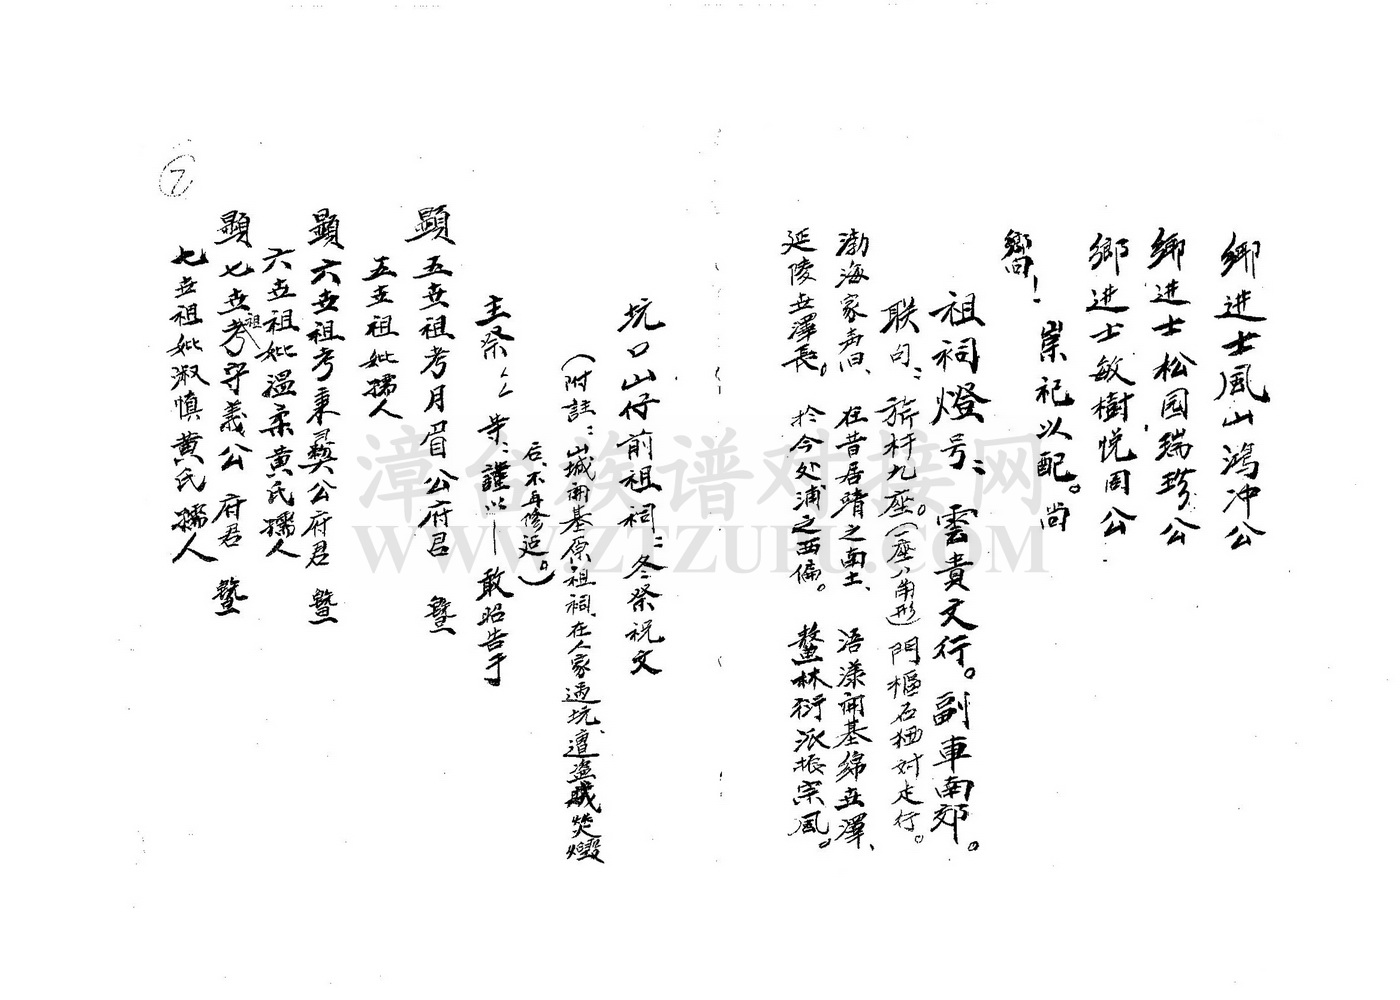 乡进士凤山鸿冲公
乡进士松园瑞珍公
鄉进士敏樹悦周公
崇祀以配。尚
嚮！
祖祠燈号：雲貴文行。副車南郊。
联句：旂杆九座。（一座八角形）門樞石栖对走行。
渤海家声旧、在昔居晴之南土、浯漾開基綿世澤、
延陵世澤長。於今处浦之西偏。鰲林衍派振宗風。
坑口山仔前祖祠：冬祭祝文
（附註：山城開基原祖祠、在人家边坑、遭盗贼焚燬
后、不再修造。）
主祭ㄙㄙ 等：謹以— 敢昭告于
顯五世祖考月眉公府君 暨
五世祖妣孺人
顯六世祖考秉彝公府君 暨
六世祖妣温柔黄氏孺人
顯七世祖考守義公府君 暨
七世祖妣淑慎黄氏孺人
7
漳台族谱对接网
WWW.ZTZUPU.COM